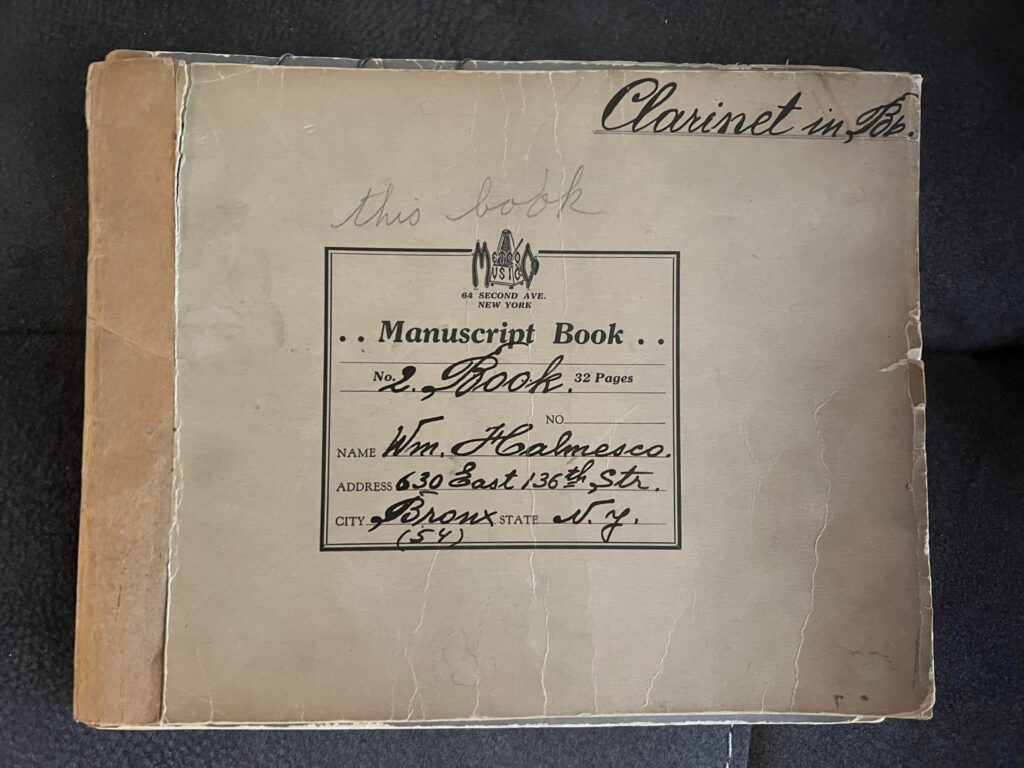 Clarinet in Bb.
this book
METRO MUSIC CO
64 SECOND AVE.
NEW YORK
. . Manuscript Book . .
No. 2. Book. 32 Pages
NO.
NAME Wm. Halmesco.
ADDRESS 630 East 136th Str.
CITY Bronx STATE N. Y.
(54)